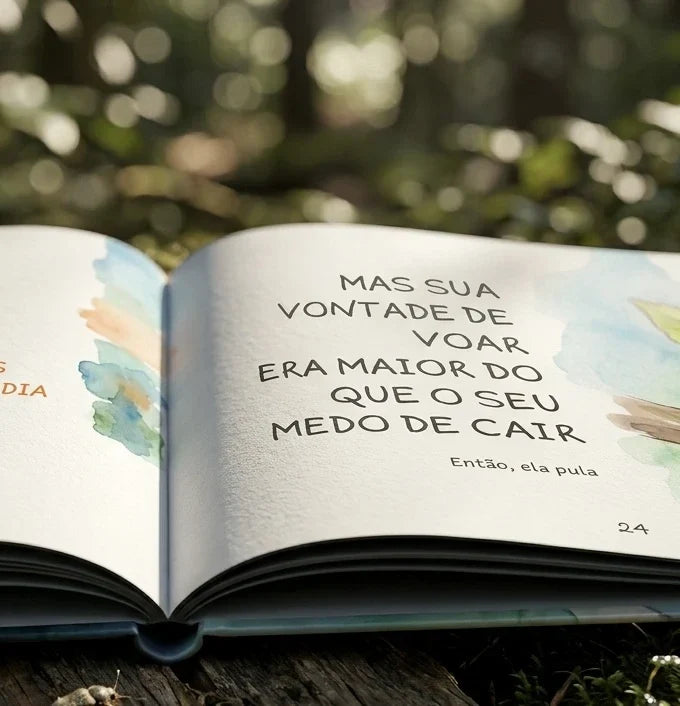 S
DIA
MAS SUA
VONTADE DE
VOAR
ERA MAIOR DO
QUE O SEU
MEDO DE CAIR
Então, ela pula
24